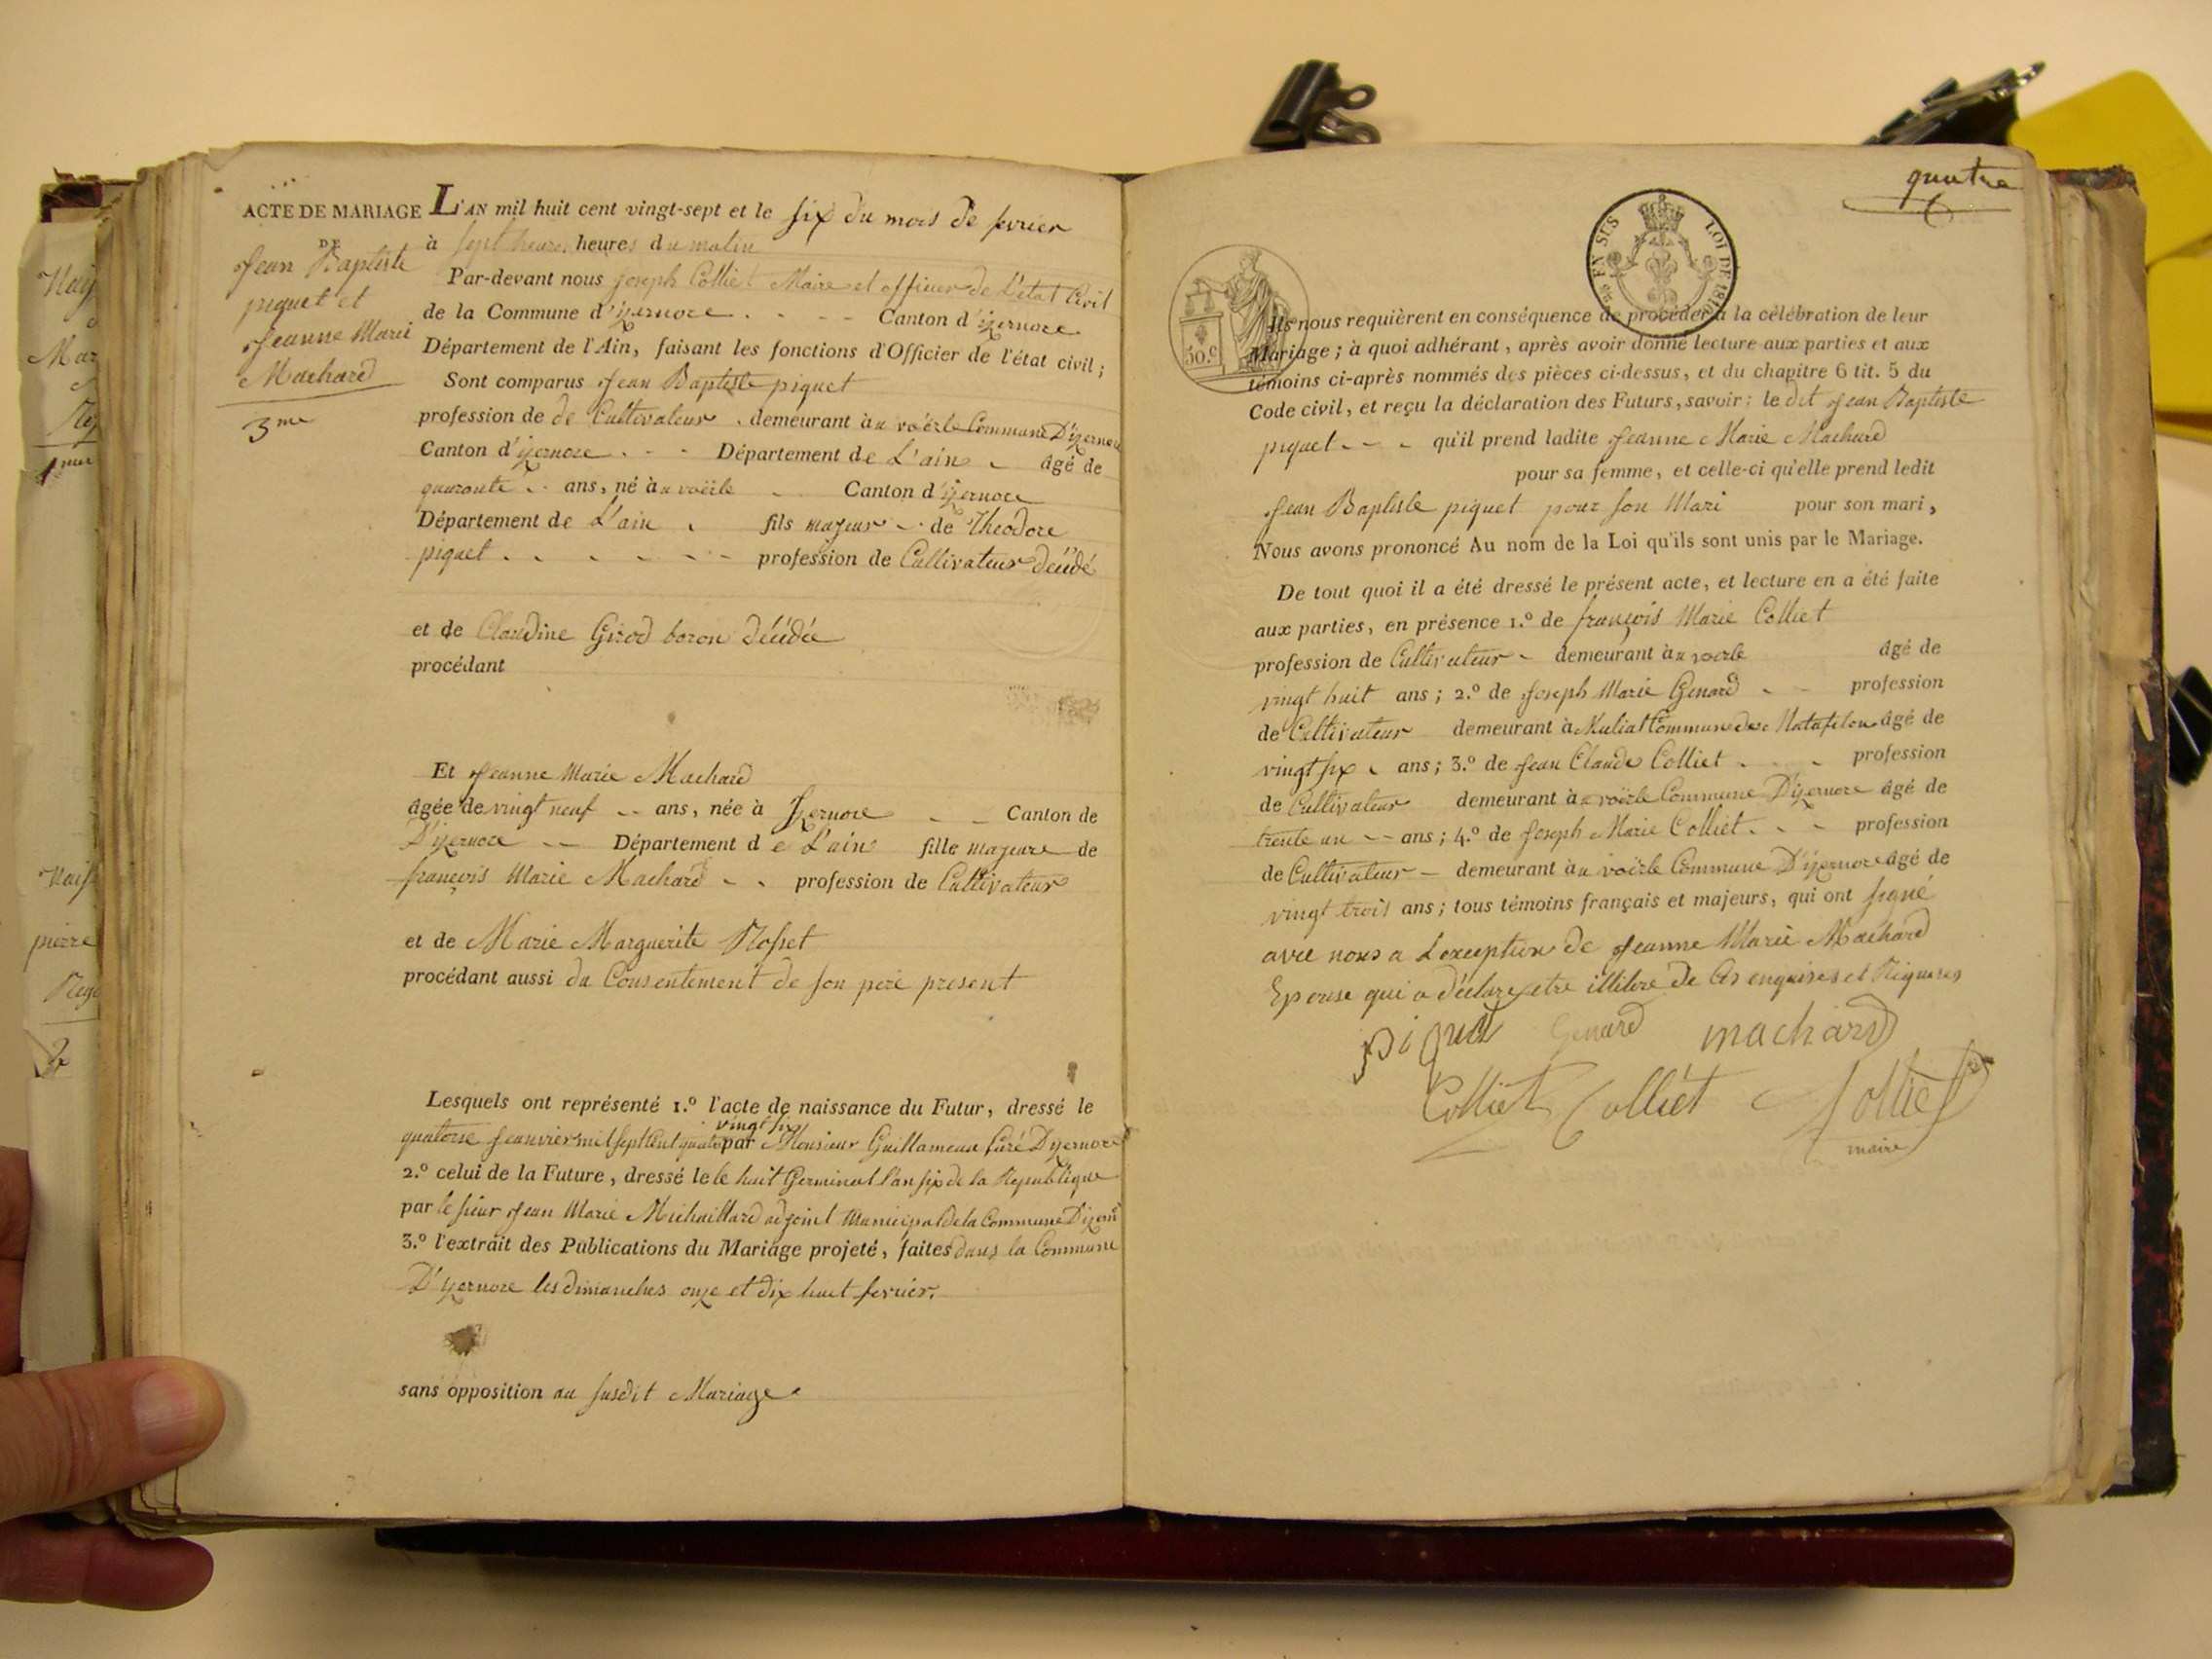 Mar
1
pierre
2
ACTE DE MARIAGE
DE
Jean Baptiste
piquet et
Jeanne Marie
Machard
3me
L'AN mil huit cent vingt-sept et le six du mois de fevrier
à sept heures heures du matin
Par-devant nous joseph Colliet Maire et officier de L'état Civil
de la Commune d'izernore Canton d'izernore
Département de l'Ain, faisant les fonctions d'Officier de l'état civil;
Sont comparus Jean Baptiste piquet
profession de de Cultivateur demeurant à voërle Commune D'izernore
Canton d'izernore Département de L'ain âgé de
quarante ans, né à voërle Canton d'izernore
Département de L'ain fils majeur de Theodore
piquet profession de Cultivateur décédé
et de Claudine Girod boron décédée
procédant
Et Jeanne Marie Machard
âgée de vingt neuf ans, née à Izernore Canton de
D'izernore Département de L'ain fille majeure de
françois Marie Machard profession de Cultivateur
et de Marie Marguerite Rosset
procédant aussi du Consentement de son pere present
Lesquels ont représenté 1.º l'acte de naissance du Futur, dressé le
vingt six
quatorse Jeanvier mil sept Cent quatre par Monsieur Guillameau Curé D'izernore
2.º celui de la Future, dressé le le huit Germinal l'an six de la République
par le sieur Jean Marie Michaillard adjoint Municipal de la Commune D'izernre
3.º l'extrait des Publications du Mariage projeté, faites dans la Commune
D'izernore les dimanches onze et dix huit fevrier.
sans opposition au susdit Mariage
quatre
EN SUS LOI DE 1816
50.c
Ils nous requièrent en conséquence de procéder à la célébration de leur
Mariage; à quoi adhérant, après avoir donné lecture aux parties et aux
témoins ci-après nommés des pièces ci-dessus, et du chapitre 6 tit. 5 du
Code civil, et reçu la déclaration des Futurs, savoir: le dit Jean Baptiste
piquet qu'il prend ladite Jeanne Marie Machard
pour sa femme, et celle-ci qu'elle prend ledit
Jean Baptiste piquet pour son Mari pour son mari,
Nous avons prononcé Au nom de la Loi qu'ils sont unis par le Mariage.
De tout quoi il a été dressé le présent acte, et lecture en a été faite
aux parties, en présence 1.º de françois Marie Colliet
profession de Cultivateur demeurant à voerle âgé de
vingt huit ans; 2.º de Joseph Marie Genard profession
de Celtivateur demeurant à Muliat Commune de Matafelon âgé de
vingt six ans; 3.º de Jean Claude Colliet profession
de Cultivateur demeurant à voërle Commune D'izernore âgé de
trente un ans; 4.º de Joseph Marie Colliet profession
de Cultivateur demeurant à voërle Commune D'izernore âgé de
vingt trois ans; tous témoins français et majeurs, qui ont signé
avec nous a L'exception de Jeanne Marie Machard
Epouse qui a déclaré etre illitere de Ces enquises et Requises
piquet Genard machard
Colliet Colliet Colliet
maire